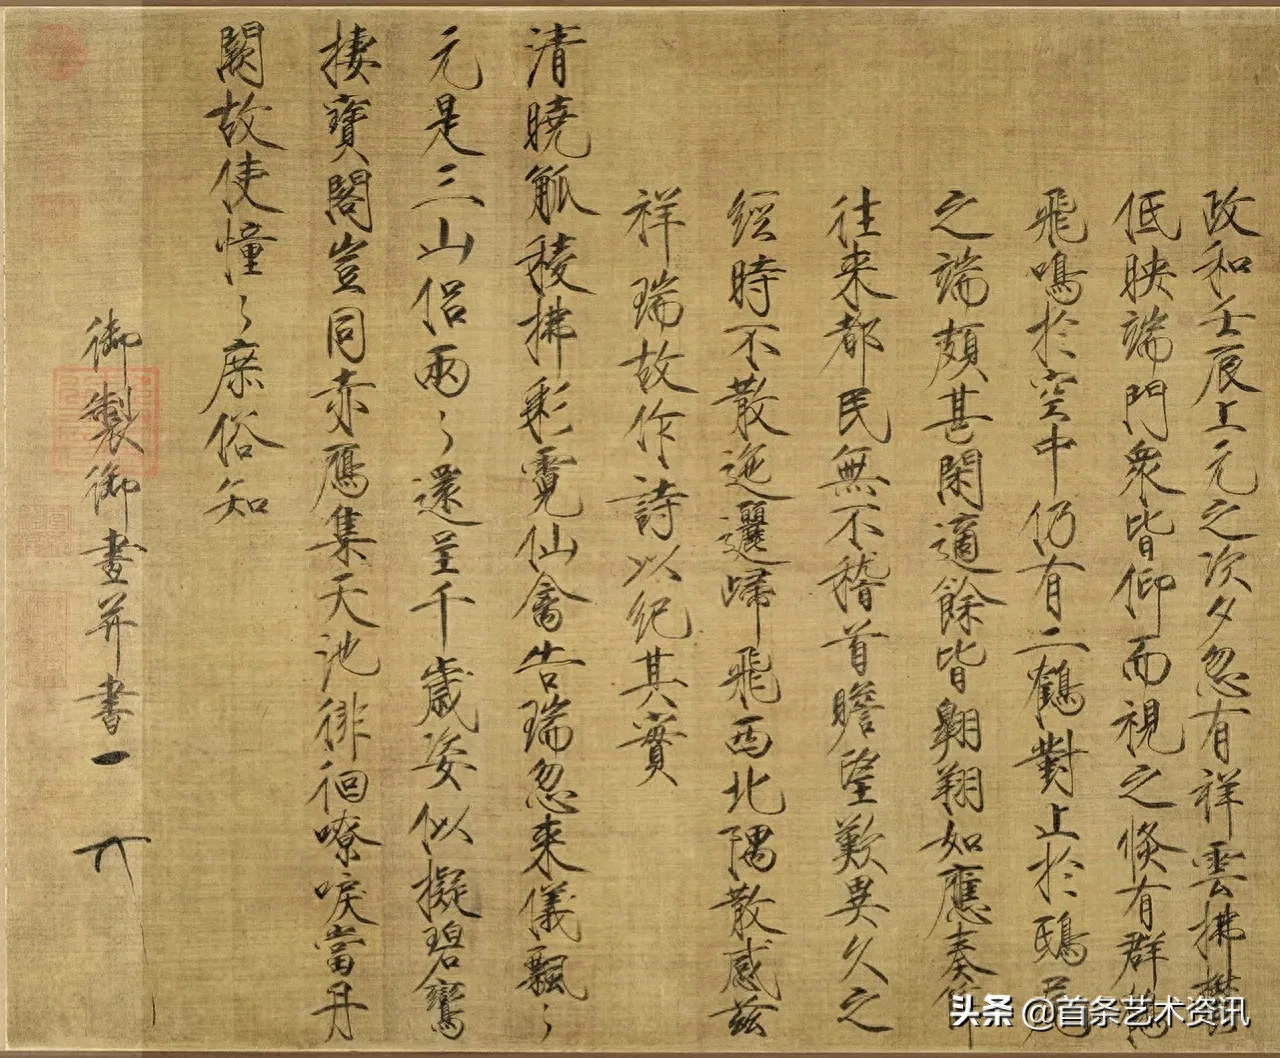 政和壬辰上元之次夕忽有祥雲拂鬱
低映端門衆皆仰而視之倏有群鶴
飛鳴於空中仍有二鶴對止於鴟尾
之端頗甚閑適餘皆翱翔如應奏節
往来都民無不稽首瞻望歎異久之
經時不散迤邐歸飛西北隅散感茲
祥瑞故作詩以紀其實
清曉觚稜拂彩霓仙禽告瑞忽来儀飄々
元是三山侶兩々還呈千歲姿似擬碧鸞
棲寶閣豈同赤鴈集天池徘徊嘹唳當丹
闕故使憧々庶俗知
御製御畫并書
头条 @首条艺术资讯